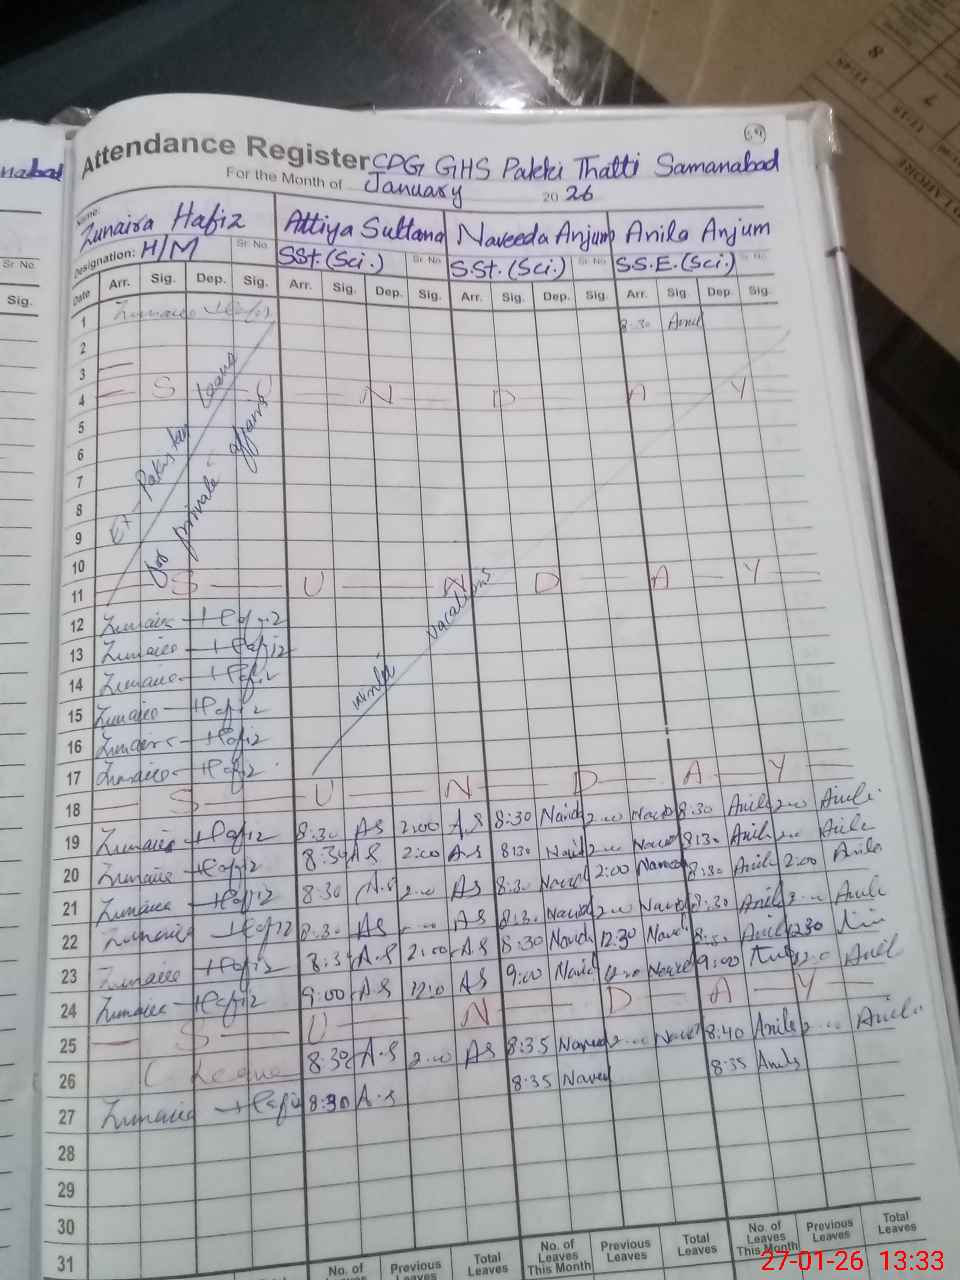 69
Attendance Register CDG GHS Pakki Thatti Samanabad
For the Month of January 2026
Name: Zunaira Hafiz Attiya Sultana Naveeda Anjum Anila Anjum
Designation: H/M Sr No. SSt. (Sci.) Sr No. S.St. (Sci.) Sr No. S.S.E. (Sci.) Sr No.
Date Arr. Sig. Dep. Sig. Arr. Sig. Dep. Sig. Arr. Sig. Dep. Sig. Arr. Sig. Dep. Sig.
1 Zunaira Hafiz 8:30 Anil
2
3
4 S U N D A Y
5
6
7
8
9
10
11 S U N D A Y
Ex Pakistan Leave
for private affairs
winter vacations
12 Zunaira Hafiz
13 Zunaira Hafiz
14 Zunaira Hafiz
15 Zunaira Hafiz
16 Zunaira Hafiz
17 Zunaira Hafiz
18 S U N D A Y
19 Zunaira Hafiz 8:30 AS 2:00 A.S 8:30 2:00 8:30 Anila 2:00 Anila
20 Zunaira Hafiz 8:30 A.S 2:00 A.S 8:30 2:00 8:30 Anila 2:00 Anila
21 Zunaira Hafiz 8:30 A.S 2:00 AS 8:30 2:00 8:30 Anila 2:00 Anila
22 Zunaira Hafiz 8:30 AS AS 8:30 2:00 8:30 Anila 2:00 Anila
23 Zunaira Hafiz A.S 2:00 A.S 8:30 12:30 Anila 12:30
24 Zunaira Hafiz 9:00 A.S 12:0 AS 9:00 12:0 9:00 12:0 Anil
25 S U N D A Y
26 C Leave 8:30 A.S 2:00 AS 8:35 2:00 8:40 Anila 2:00 Anila
27 Zunaira Hafiz 8:30 A.S 8:35 Naved 8:35 Anila
28
29
30
31
No. of Leaves Previous Leaves Total Leaves No. of Leaves This Month Previous Leaves Total Leaves No. of Leaves This Month Previous Leaves Total Leaves
27-01-26 13:33